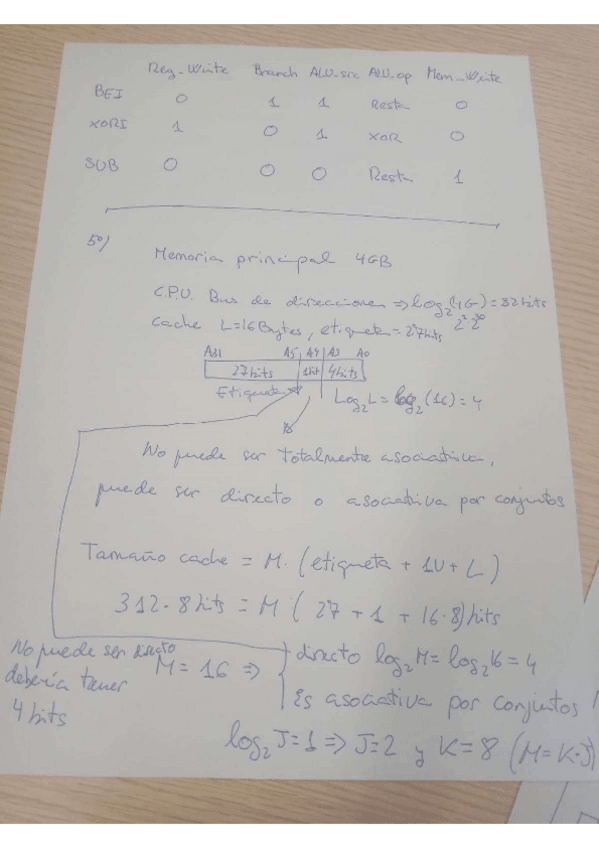 Reg_Write Branch ALU_src ALU_op Mem_Write
BEI 0 1 1 Resta 0
XORI 1 0 1 XOR 0
SUB 0 0 0 Resta 1
5º)
Memoria principal 4GB
C.P.U. Bus de direcciones => log₂(4G) = 32 bits
2² 2³⁰
Cache L=16Bytes, etiqueta = 27bits
A31 A5 A4 A3 A0
27bits 1bit 4bits
Etiqueta Log₂L = log₂(16) = 4
No puede ser totalmente asociativa,
puede ser directo o asociativa por conjuntos
Tamaño cache = M. (etiqueta + 1V + L)
312·8bits = M (27 + 1 + 16·8)bits
No puede ser directo
debería tener
4 bits
M = 16 => directo log₂M = log₂16 = 4
Es asociativa por conjuntos
log₂J=1 => J=2 y K=8 (M=K·J)